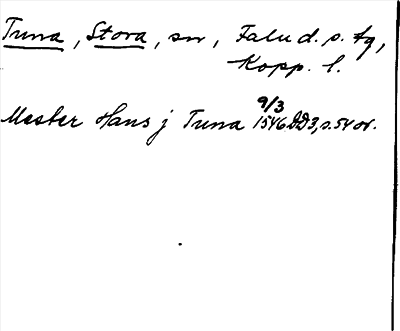 Tuna, Stora, sn, Falu d. s. tg,
Kopp. l.
Mester Hans j Tuna 9/3 1546 DD3, s. 54 or.